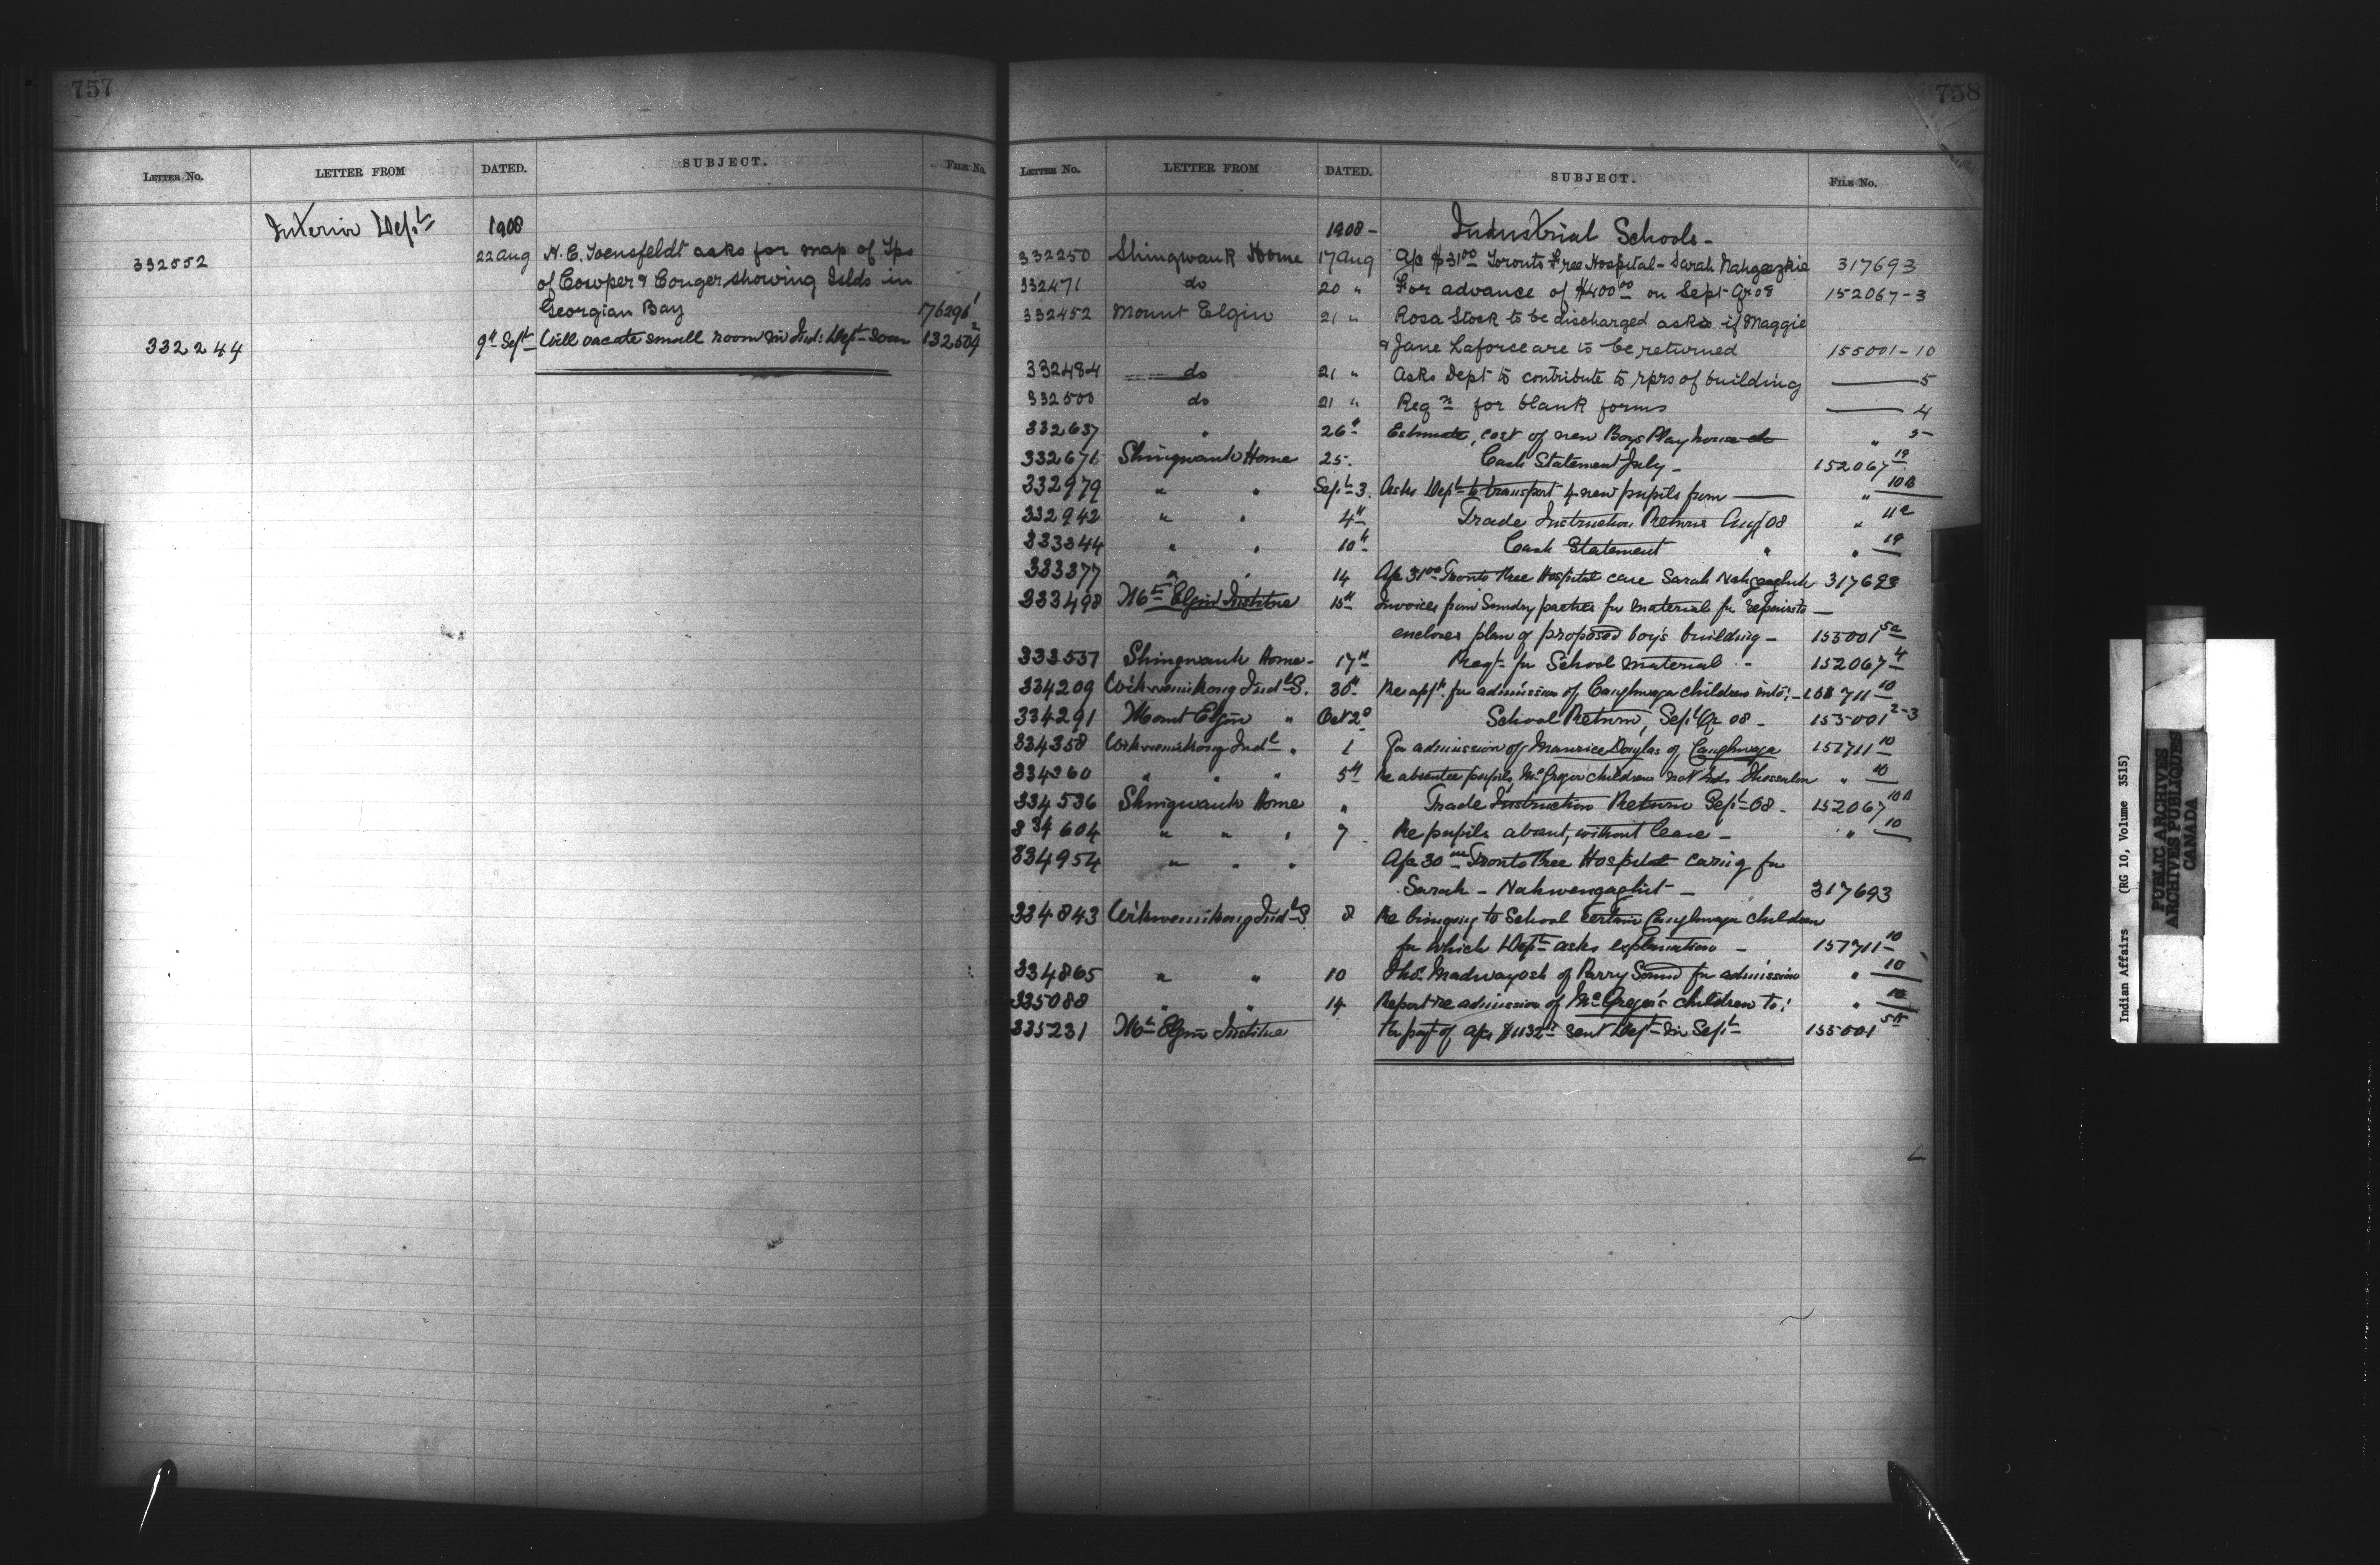 757
LETTER No. LETTER FROM DATED. SUBJECT. FILE No.
Interior Dept 1908
332552 22 Aug H. C. asks for map of Tps
of Cowper & Conger showing Islds in
Georgian Bay 176296 1
332244 9th Sept Will vacate small room in Ind: Dept soon 132504 2
758
LETTER No. LETTER FROM DATED. SUBJECT. FILE No.
1908 - Industrial Schools -
332250 Shingwauk Home 17 Aug a/c $31 00 Toronto Free Hospital - Sarah 317693
332471 do 20 " For advance of $400 00 on Sept Qr 08 152067-3
332452 Mount Elgin 21 " Rosa Stock to be discharged asks if Maggie
& Jane Laforce are to be returned 155001-10
332484 do 21 " Asks Dept to contribute to rprs of building —— 5
332500 do 21 " Reqn for blank forms —— 4
332637 " 26th Estimate, cost of new Boys Play house do " 5
332676 Shingwauk Home 25. Cash Statement July - 152067 19
332979 " " Sept 3. Asks Dept to transport 4 new pupils from —— " 10B
332942 " " 4th Trade Instruction Returns Aug/08 "
333344 " " 10th Cash Statement " " 19
333377 " " 14 a/c 31 00 Toronto Free Hospital care Sarah 317693
333498 Mt Elgin Institue 15th Invoices from Sundry parties for material for repairs to —
encloses plan of proposed boy's building - 155001 5a
333537 Shingwauk Home - 17th Reqt for School material - 152067 4
334209 Wikwemikong Indl S. 30th Re appn for admission of Caughnaga children into! - 10
334291 Mount Elgin " Oct 2d School Return, Sept Qr 08 - 155001 2-3
334358 Wikwemikong Indl " 1 For admission of Maurice Douglas of Caughnaga 157711 10
334360 " " " 5th Re absentee pupils, McGregor children not " 10
334536 Shingwauk Home " Trade Instruction Return Sept 08 - 152067
334604 " " " 7 Re pupils absent, without leave - " 10
334954 " " " a/c 30 Toronto Free Hospital caring for
Sarah - 317693
334843 Wikwemikong Indl S 8 Re bringing to School certain Caughnaga children
for which Dept asks explanation - 157711 10
334865 " " 10 Thos. Madwayosh of Parry Sound for admission " 10
335088 " " 14 Report re admission of McGregor's children to! " 10
335231 Mt Elgin Institue Re payt of a/cs sent Dept in Sept 155001
Indian Affairs (RG 10, Volume 3515)
PUBLIC ARCHIVES
ARCHIVES PUBLIQUES
CANADA